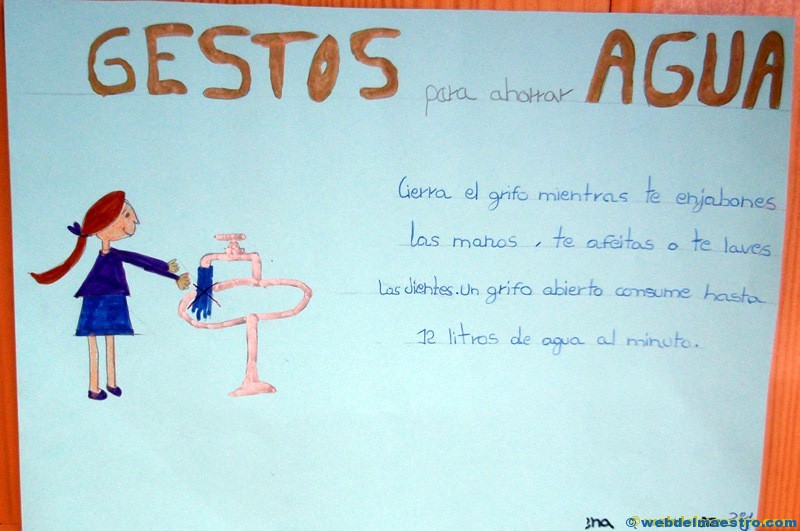 GESTOS para ahorrar AGUA
Cierra el grifo mientras te enjabones
las manos, te afeitas o te laves
los dientes. Un grifo abierto consume hasta
12 litros de agua al minuto.
© webdelmaestro.com